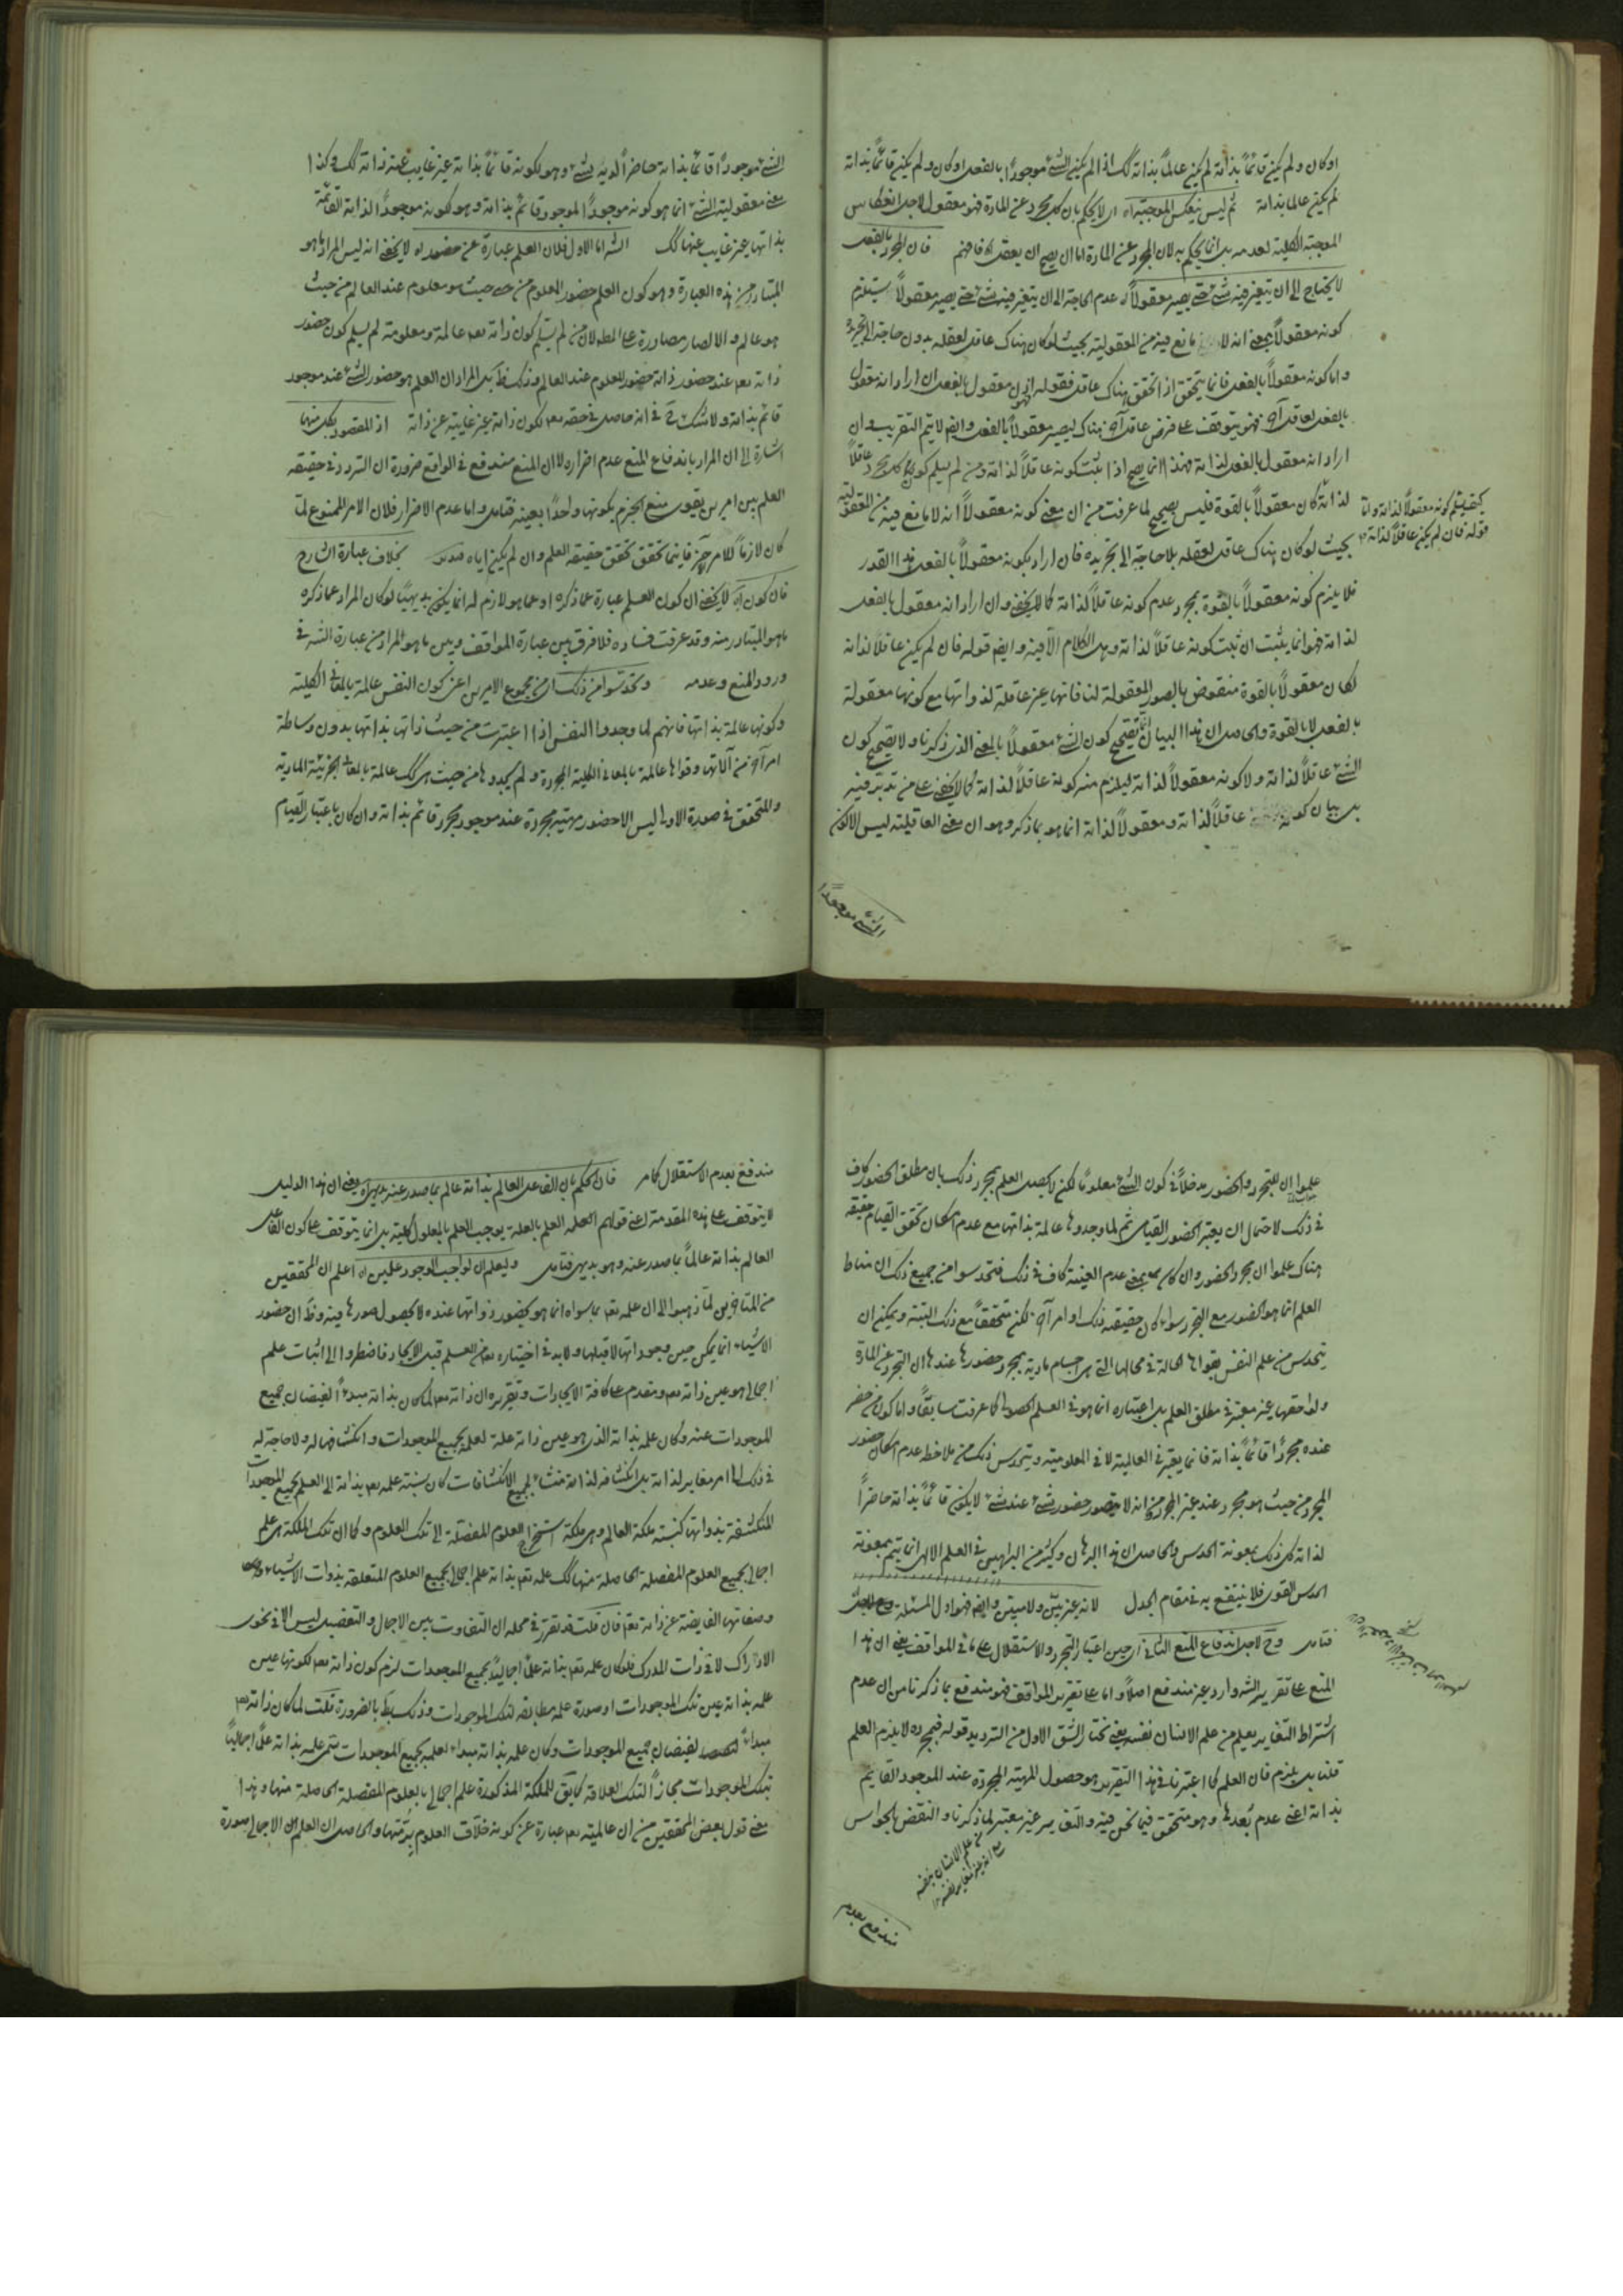 او كان ولم يكن قائماً بذاته لم يكن عالماً بذاته كك اذا لم يكن الشئ موجوداً بالفعل او كان ولم يكن قائماً بذاته
لم يكن عالما بذاته ثم ليس ينعكس الموجبة اه اى لا يحكم بان كل مجرد عن المادة فهو معقول لاجل انعكاس
الموجبة الكلية لعدمه بل انما يحكم به لان المجرد عن المادة اما ان يصح ان يعقل اه فافهم فان المجرد بالفعل
لا يحتاج الى ان يتغير فيه شئ حتى يصير معقولاً اه عدم الحاجة الى ان يتغير فيه شئ حتى يصير معقولاً يستلزم
كونه معقولاً بمعنى انه لا مانع فيه من المعقولية بحيث لو كان هناك عاقل لعقله بدون حاجة الى تجريد
واما كونه معقولاً بالفعل فانما يتحقق اذا تحقق هناك عاقل فقوله اذن معقول بالفعل ان اراد انه معقول
بالفعل لعاقل آخر فهو يتوقف على فرض عاقل آخر هناك ليصير معقولاً بالفعل وايضا لا يتم التقريب وان
اراد انه معقول بالفعل لذاته فهذا انما يصح اذا ثبت كونه عاقلاً لذاته ومن لم يسلم كون كل مجرد عاقلاً
لذاته كان معقولاً بالقوة فليس بصحيح لما عرفت من ان معنى كونه معقولاً انه لا مانع فيه من المعقولية
كيف يسلم كونه معقولاً لذاته واما
قوله فان لم يكن عاقلاً لذاته
بحيث لو كان هناك عاقل لعقله بلا حاجة الى تجريده فان اراد بكونه معقولاً بالفعل هذا القدر
فلا يلزم كونه معقولاً بالقوة بمجرد عدم كونه عاقلاً لذاته كما لا يخفى وان اراد انه معقول بالفعل
لذاته فهو انما يثبت ان ثبت كونه عاقلاً لذاته وهل الكلام الا فيه وايضا قوله فان لم يكن عاقلاً لذاته
لكان معقولاً بالقوة منقوض بالصور المعقولة لنا فانها غير عاقلة لذواتها مع كونها معقولة
بالفعل لا بالقوة والحاصل ان هذا البيان انما يصحح كون الشئ معقولاً بالمعنى الذى ذكرنا ولا يصحح كون
الشئ عاقلاً لذاته ولا كونه معقولاً لذاته ليلزم منه كونه عاقلاً لذاته كما لا يخفى على من تدبر فيه
بل بيان كونه عاقلاً لذاته ومعقولاً لذاته انما هو بما ذكر وهو ان معنى العاقلية ليس الا كون
الشئ موجوداً
الشئ موجوداً قائماً بذاته حاضراً لديه شئ وهو بكونه قائماً بذاته غير غايب عنه ذاته كك وكذا
معنى معقولية الشئ انما هو كونه موجوداً لموجود قائم بذاته وهو كونه موجوداً لذاته القائمة
بذاتها غير غايب عنها كك الشه اما الاول فلان العلم عبارة عن حضور اه لا يخفى انه ليس المراد ما هو
المتبادر من هذه العبارة وهو كون العلم حضور المعلوم من حيث هو معلوم عند العالم من حيث
هو عالم والا لصار مصادرة على المط لان من لم يسلم كون ذاته تعم عالمة ومعلومة لم يسلم كون حضور
ذاته تعم عند حضور ذاته حضور المعلوم عند العالم وذلك ظ بل المراد ان العلم هو حضور الشئ عند موجود
قائم بذاته ولا شك فى انه حاصل فى حقه تعم لكون ذاته غير غايبة عن ذاته اذ المقصود بكل منهما
اشارة الى ان المراد باندفاع المنع عدم اضراره لا ان المنع مندفع فى الواقع ضرورة ان التردد فى حقيقة
العلم بين امرين يقوى منع الجزم بكونها واحداً بعينه فتامل واما عدم الاضرار فلان الامر الممنوع لما
كان لازماً للامر الآخر فاينما تحقق تحقق حقيقة العلم وان لم يكن اياه بخلاف عبارة الشارح
فان كون اه لا يخفى ان كون العلم عبارة عما ذكره او عما هو لازم له انما يكون بديهياً لو كان المراد عما ذكره
ما هو المتبادر منه وقد عرفت فساده فلا فرق بين عبارة المواقف وبين ما هو المراد من عبارة الشه فى
ورود المنع وعدمه وتحدسوا من ذلك اى من مجموع الامرين اعنى كون النفس عالمة بالمعانى الكلية
وكونها عالمة بذاتها فانهم لما وجدوا النفس اذا اعتبرت من حيث ذاتها بذاتها بدون وساطة
امر آخر من آلاتها وقواها عالمة بالمعانى الكلية المجردة ولم يجدوها من حيث هى كك عالمة بالمعانى الجزئية المادية
والمتحقق فى صورة الاولى ليس الا حضور مهية مجردة عند موجود مجرد قائم بذاته وان كان باعتبار القيام
علموا ان للتجرد والحضور مدخلاً فى كون الشئ معلوماً لكن لا يحصل العلم بمجرد ذلك بان مطلق الحضور كاف
فى ذلك لاحتمال ان يعتبر الحضور القيامى ثم لما وجدوها عالمة بذاتها مع عدم امكان تحقق القيام حقيقة
هناك علموا ان مجرد الحضور وان كان بمعنى عدم الغيبة كاف فى ذلك فتحدسوا من جميع ذلك ان مناط
العلم انما هو الحضور مع التجرد سواء كان حقيقته ذلك او امر آخر لكن متحققاً مع ذلك البتة ويمكن ان
يتحدس من علم النفس بقواها الحالة فى محالها التى هى اجسام مادية بمجرد حضورها عندها ان التجرد عن المادة
ولواحقها غير معتبر فى مطلق العلم بل اعتباره انما هو فى العلم الحصولى كما عرفت سابقاً واما كون من حضر
عنده مجرداً قائماً بذاته فانما يعتبر فى العالمية لا فى المعلومية ويتحدس ذلك من ملاحظة عدم امكان حضور
المجرد من حيث هو مجرد عند غير المجرد وانه لا يتصور حضور شئ عند شئ لا يكون قائماً بذاته حاضراً
لذاته كل ذلك بمعونة الحدس والحاصل ان هذا البرهان وكثير من البراهين فى العلم الالهى انما يتم بمعونة
الحدس القوى فلا ينتفع به فى مقام الجدل لانه غير بين ولا مبين وايضا فهو اول المسئلة
فتامل وح لاجل اندفاع المنع الثانى اى حين اعتبار التجرد والاستقلال على ما فى المواقف يعنى ان هذا
المنع على تقرير الشه وارد غير مندفع اصلاً واما على تقرير المواقف فهو مندفع بما ذكرنا من ان عدم
اشتراط التغاير يعلم من علم الانسان نفسه يعنى نختار الشق الاول من الترديد قوله فبمجرده لا يلزم العلم
قلنا بل يلزم فان العلم كما اعتبرنا فى هذا التقرير هو حصول المهية المجردة عند الموجود القائم
بذاته اعنى عدم بُعدها وهو متحقق فيما نحن فيه والتغاير غير معتبر لما ذكرنا والنقض بالحواس
من علم الانسان بنفسه
مع انه غير مغاير لنفسه
مندفع بعدم
مندفع بعدم الاستقلال كما مر فان الحكم بان الفاعل العالم بذاته عالم بما صدر عنه بديهى اه يعنى ان هذا الدليل
لا يتوقف على هذه المقدمة اعنى قولهم العلم بالعلة يوجب العلم بالمعلول كلية بل انما يتوقف على كون الفاعل
العالم بذاته عالماً بما صدر عنه وهو بديهى فتامل وليعلم ان لواجب الوجود علمين اه اعلم ان المحققين
من المتاخرين لما ذهبوا الى ان علمه تعم بما سواه انما هو بحضور ذواتها عنده لا بحصول صورها فيه وظ ان حضور
الاشياء انما يمكن حين وجوداتها لا قبلها ولا بد فى اختياره تعم من العلم قبل الايجاد فاضطروا الى اثبات علم
اجمالى هو عين ذاته تعم ومتقدم على كافة الايجادات وتقريره ان ذاته تعم لما كان بذاته مبدءاً لفيضان جميع
الموجودات عنه وكان علمه بذاته الذى هو عين ذاته علة لعلمه بجميع الموجودات وانكشافها له ولا حاجة له
فى ذلك الى امر مغاير لذاته بل انكشافه لذاته منشاء لجميع الانكشافات كان نسبة علمه تعم بذاته الى العلم بجميع الموجودات
المنكشفة بذواتها كنسبة ملكة العالم وهى ملكة استخراج العلوم المفصلة الى تلك العلوم وكما ان تلك الملكة هى علم
اجمالى بجميع العلوم المفصلة الحاصلة منها كك علمه تعم بذاته علم اجمالى بجميع العلوم المتعلقة بذوات الاشياء
وصفاتها الفايضة عن ذاته تعم فان قلت قد تقرر فى محله ان التفاوت بين الاجمال والتفصيل ليس الا فى نحوى
الادراك لا فى ذات المدرك فلو كان علمه تعم بذاته علماً اجمالياً بجميع الموجودات لزم كون ذاته تعم لكونها عين
علمه بذاته عين تلك الموجودات او صورة علمية مطابقة لتلك الموجودات وذلك بط بالضرورة قلت لما كان ذاته تعم
مبداء لفيضان جميع الموجودات وكان علمه بذاته مبداء لعلمه بجميع الموجودات سمى علمه بذاته علماً اجمالياً
بتلك الموجودات مجازاً لتلك العلاقة كما يق للملكة المذكورة علم اجمالى بالعلوم المفصلة الحاصلة منها وهذا
معنى قول بعض المحققين من ان عالميته تعم عبارة عن كونه خلاق العلوم برمتها والحاصل ان العلم الاجمالى صورة